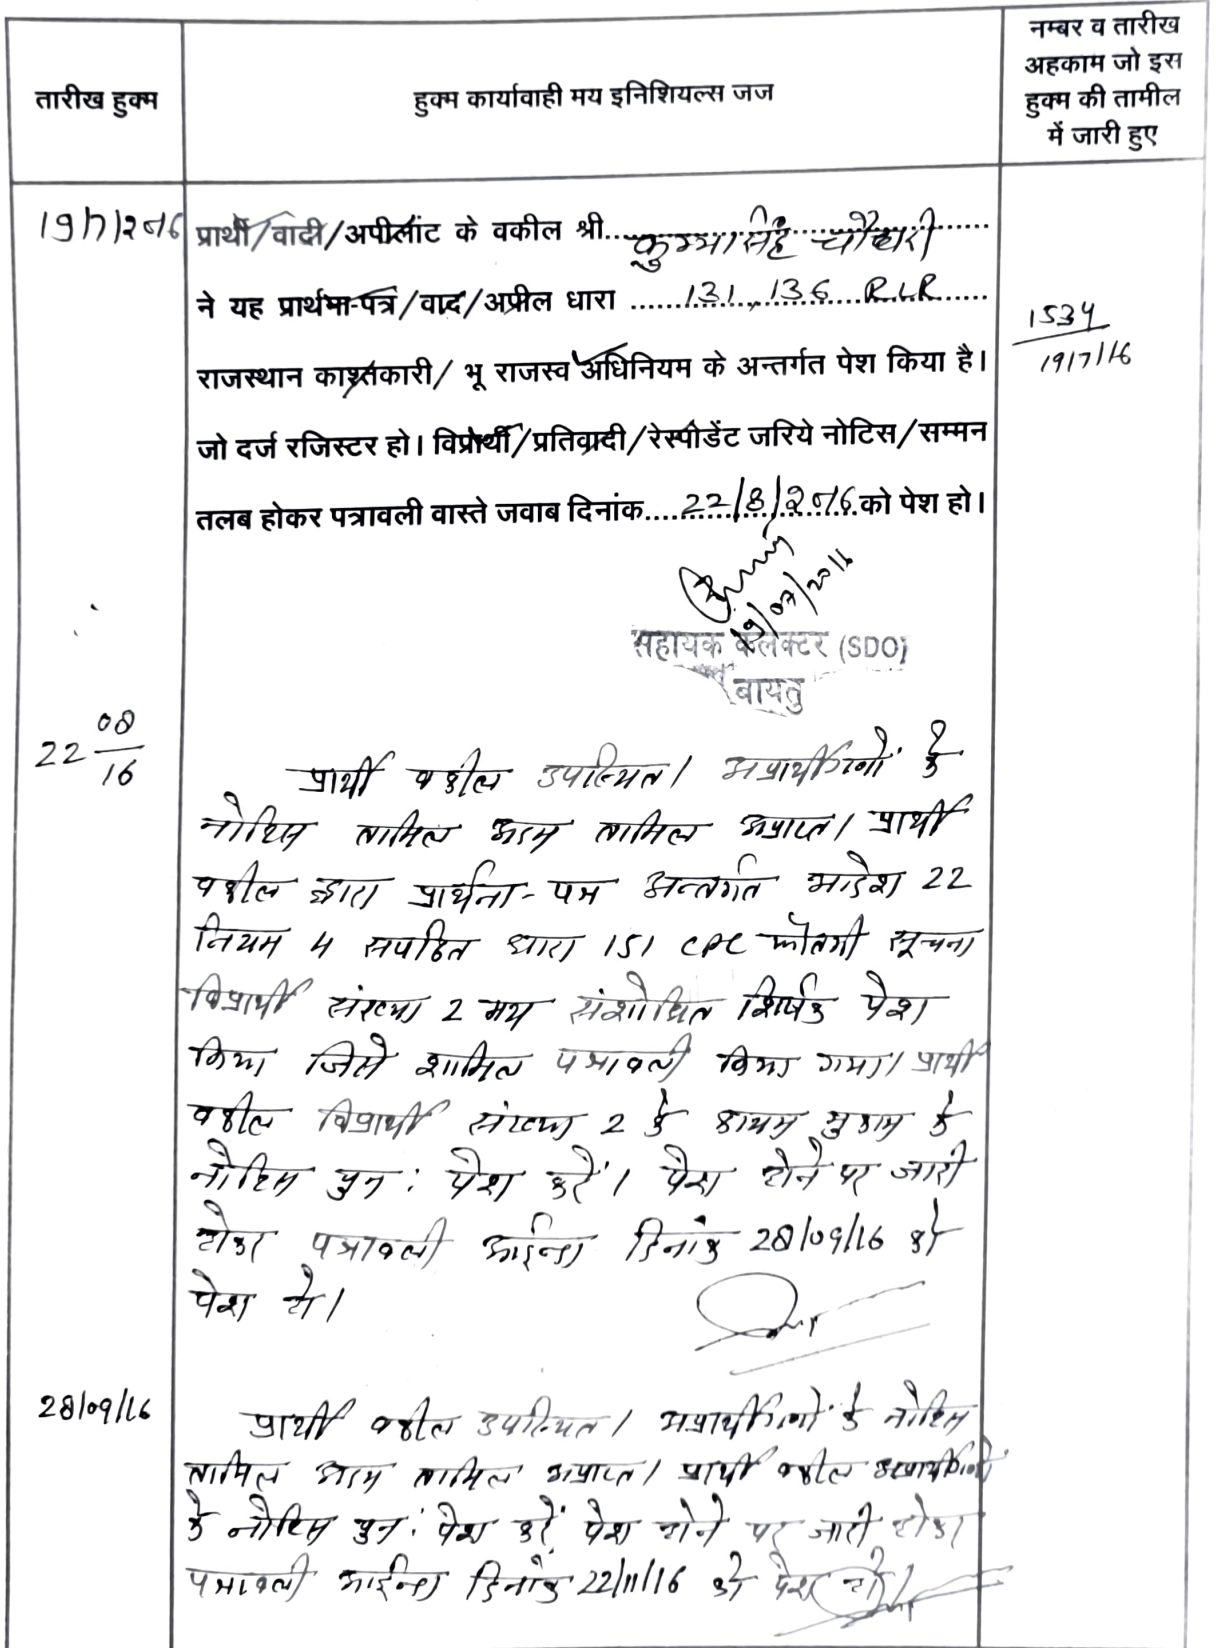 तारीख हुक्म
हुक्म कार्यावाही मय इनिशियल्स जज
नम्बर व तारीख
अहकाम जो इस
हुक्म की तामील
में जारी हुए
19/7/2016
प्रार्थी/वादी/अपीलांट के वकील श्री..कुम्भासिंह चौधरी
ने यह प्रार्थना-पत्र/वाद/अप्रील धारा ......131, 136 RLR......
1534
19/7/16
राजस्थान काश्तकारी/ भू राजस्व अधिनियम के अन्तर्गत पेश किया है।
जो दर्ज रजिस्टर हो। विप्रार्थी/प्रतिवादी/रेस्पोडेंट जरिये नोटिस/सम्मन
तलब होकर पत्रावली वास्ते जवाब दिनांक....22/8/2016.को पेश हो।
19/07/2016
सहायक कलेक्टर (SDO)
बायतु
22 08/16
प्रार्थी वकील उपस्थित। अप्रार्थीगणों के
नोटिस तामिल अदम तामिल अप्राप्त। प्रार्थी
वकील द्वारा प्रार्थना-पत्र अन्तर्गत आदेश 22
नियम 4 सपठित धारा 151 CPC फौतगी सूचना
विप्रार्थी संख्या 2 मय संशोधित शिर्षक पेश
किया जिसे शामिल पत्रावली किया गया। प्रार्थी
वकील विप्रार्थी संख्या 2 के कायम मुकाम के
नोटिस पुन: पेश करें। पेश होने पर जारी
होकर पत्रावली आईन्दा दिनांक 28/09/16 को
पेश हो।
28/09/16
प्रार्थी वकील उपस्थित। अप्रार्थीगणों के नोटिस
तामिल अदम तामिल अप्राप्त। प्रार्थी वकील अप्रार्थीगणों
के नोटिस पुन: पेश करें पेश होने पर जारी होकर
पत्रावली आईन्दा दिनांक 22/11/16 को पेश हो।